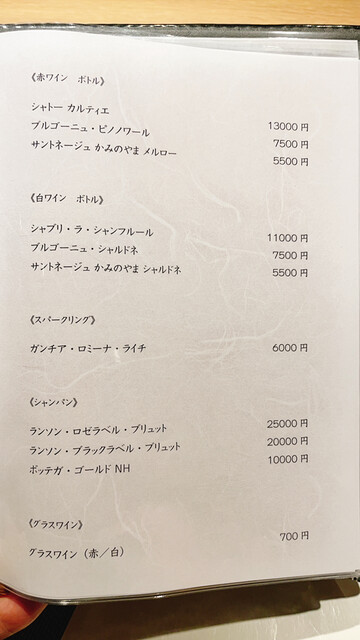 《赤ワイン ボトル》
シャトー カルティエ 13000 円
ブルゴーニュ・ピノノワール 7500 円
サントネージュ かみのやま メルロー 5500 円
《白ワイン ボトル》
シャブリ・ラ・シャンフルール 11000 円
ブルゴーニュ・シャルドネ 7500 円
サントネージュ かみのやま シャルドネ 5500 円
《スパークリング》
ガンチア・ロミーナ・ライチ 6000 円
《シャンパン》
ランソン・ロゼラベル・ブリュット 25000 円
ランソン・ブラックラベル・ブリュット 20000 円
ボッテガ・ゴールド NH 10000 円
《グラスワイン》
グラスワイン（赤／白） 700 円